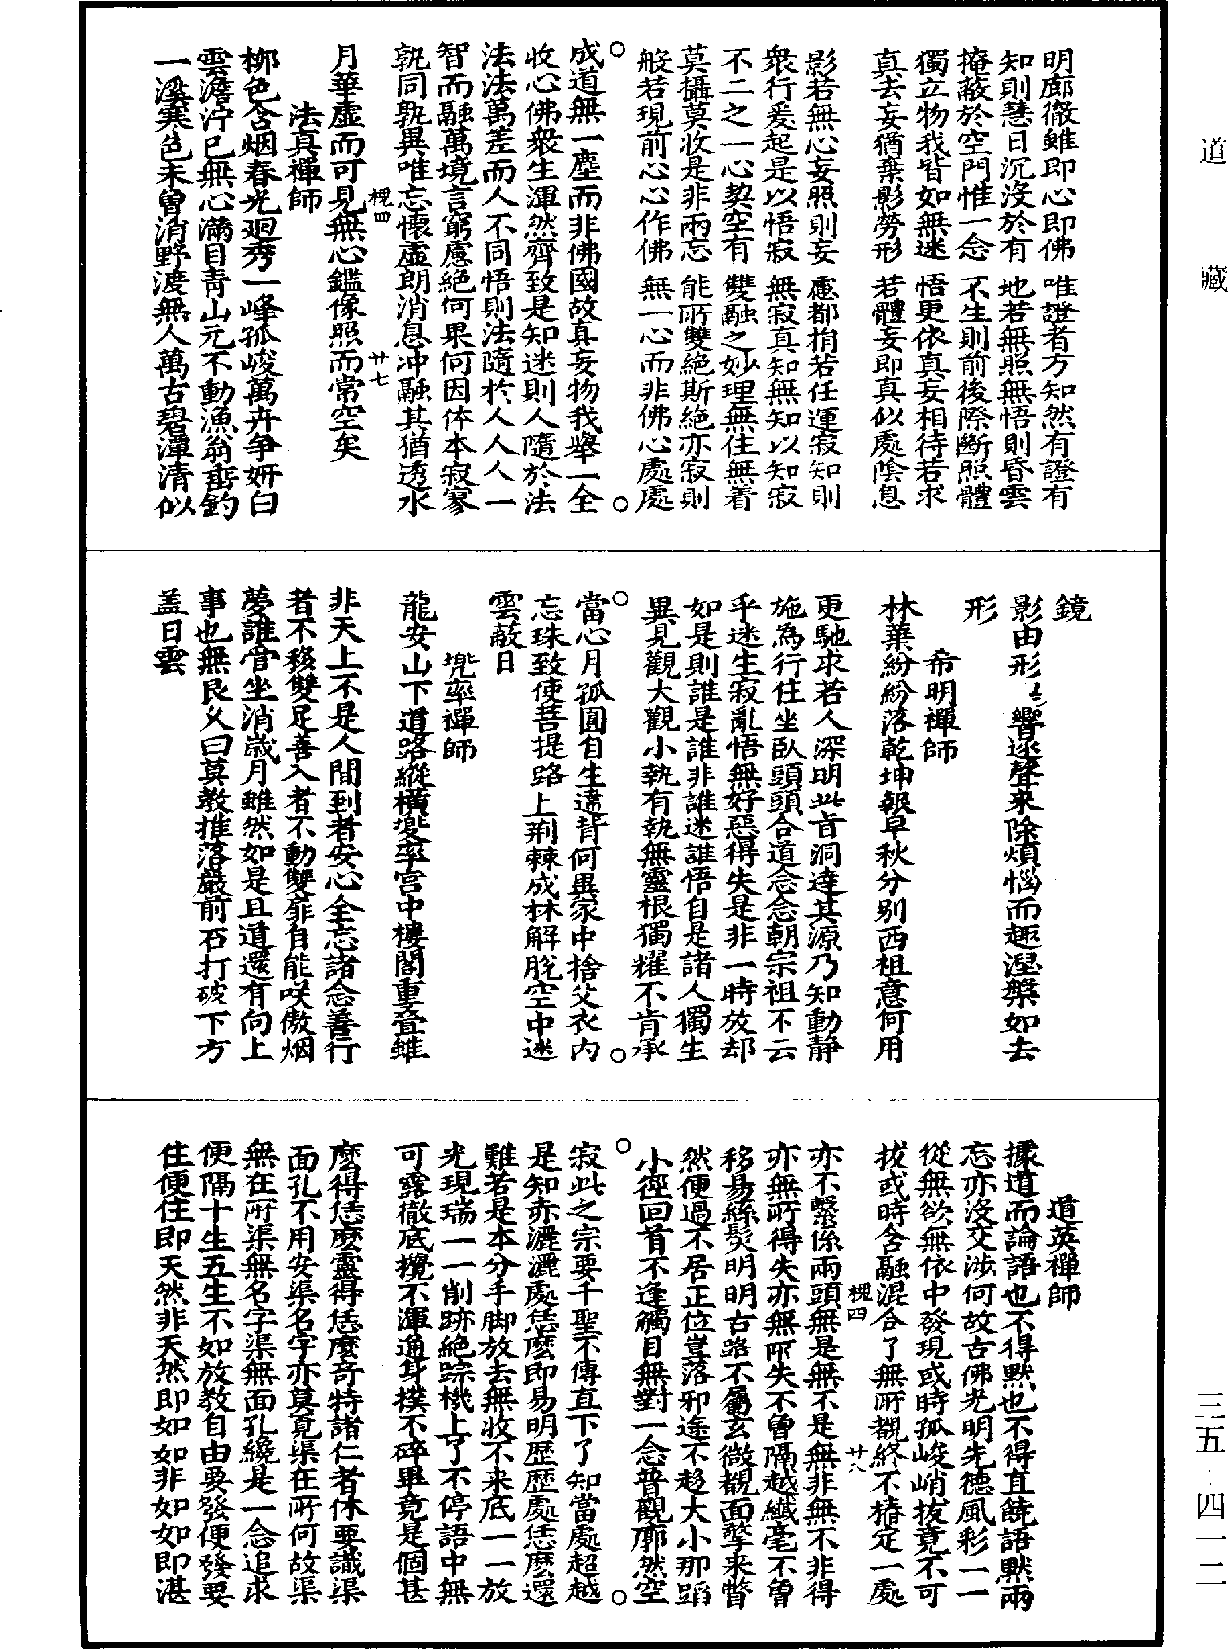 明廊徹雖即心即佛　唯證者方知然有證有
知則慧日沉沒於有　地若無照無悟則昏雲
掩蔽於空門惟一念　不生則前後際斷照體
獨立物我皆如無迷　悟更依真妄相待若求
真去妄猶棄影勞形　若體妄即真似處陰息
影若無心妄照則妄　慮都捐若任運寂知則
衆行爰起是以悟寂　無寂真知無知以知寂
不二之一心契空有　雙融之妙理無住無着
莫攝莫收是非兩忘　能所雙絕斯絕亦寂則
般若現前心心作佛　無一心而非佛心處處
成道無一塵而非佛國故真妄物我舉一全
收心佛衆生渾然齊致是知迷則人隨於法
法法萬差而人不同悟則法隨於人人人一
智而融萬境言窮慮絕何果何因体本寂寥
孰同孰異唯忘懷虛朗消息沖融其猶透水
槐四
廿七
月華虛而可見無心鑑像照而常空矣
法真禪師
柳色含烟春光迴秀一峰孤峻萬卉爭妍白
雲澹泞已無心滿目靑山元不動漁翁垂釣
一溪寒色未曾消野渡無人萬古碧潭清似
鏡
影由形起響逐聲來除煩惱而趣涅槃如去
形
希明禪師
林葉紛紛落乾坤報早秋分別西祖意何用
更馳求若人深明此旨洞達其源乃知動靜
施為行住坐臥頭頭合道念念朝宗祖不云
乎迷生寂亂悟無好惡得失是非一時放却
如是則誰是誰非誰迷誰悟自是諸人獨生
異見觀大觀小執有執無靈根獨耀不肯承
當心月孤圓自生違背何異家中捨父衣內
忘珠致使菩提路上荆棘成林解脫空中迷
雲蔽日
兠率禪師
龍安山下道路縱橫兠率宮中樓閣重疊雖
非天上不是人間到者安心全忘諸念善行
者不移雙足善入者不動雙扉自能咲傲烟
夢誰當坐消歲月雖然如是且道還有向上
事也無良久曰莫教推落巖前石打破下方
盖日雲
道英禪師
據道而論語也不得默也不得直饒語默兩
忘亦沒交涉何故古佛光明先德風彩一一
從無欲無依中發現或時孤峻峭拔竟不可
拔或時含融混合了無所覩終不樁定一處
槐四
廿八
亦不繫係兩頭無是無不是無非無不非得
亦無所得失亦無所失不曾隔越纖毫不曾
移易絲髪明明古路不屬玄微覿面擎來瞥
然便過不居正位豈落邪途不趁大小那蹈
小徑回首不逢觸目無對一念普觀廓然空
寂此之宗要千聖不傳直下了知當處超越
是知亦灑灑處恁麼即易明歷歷處恁麼還
難若是本分手脚放去無收不来底一一放
光現瑞一一削跡絕踪機上了不停語中無
可露徹底攪不渾通身撲不碎畢竟是個甚
麼得恁麼靈得恁麼奇特諸仁者休要識渠
面孔不用安渠名字亦莫覔渠在所何故渠
無在所渠無名字渠無面孔纔是一念追求
便隔十生五生不如放教自由要發便發要
住便住即天然非天然即如如非如如即湛
道藏
三五·四一二